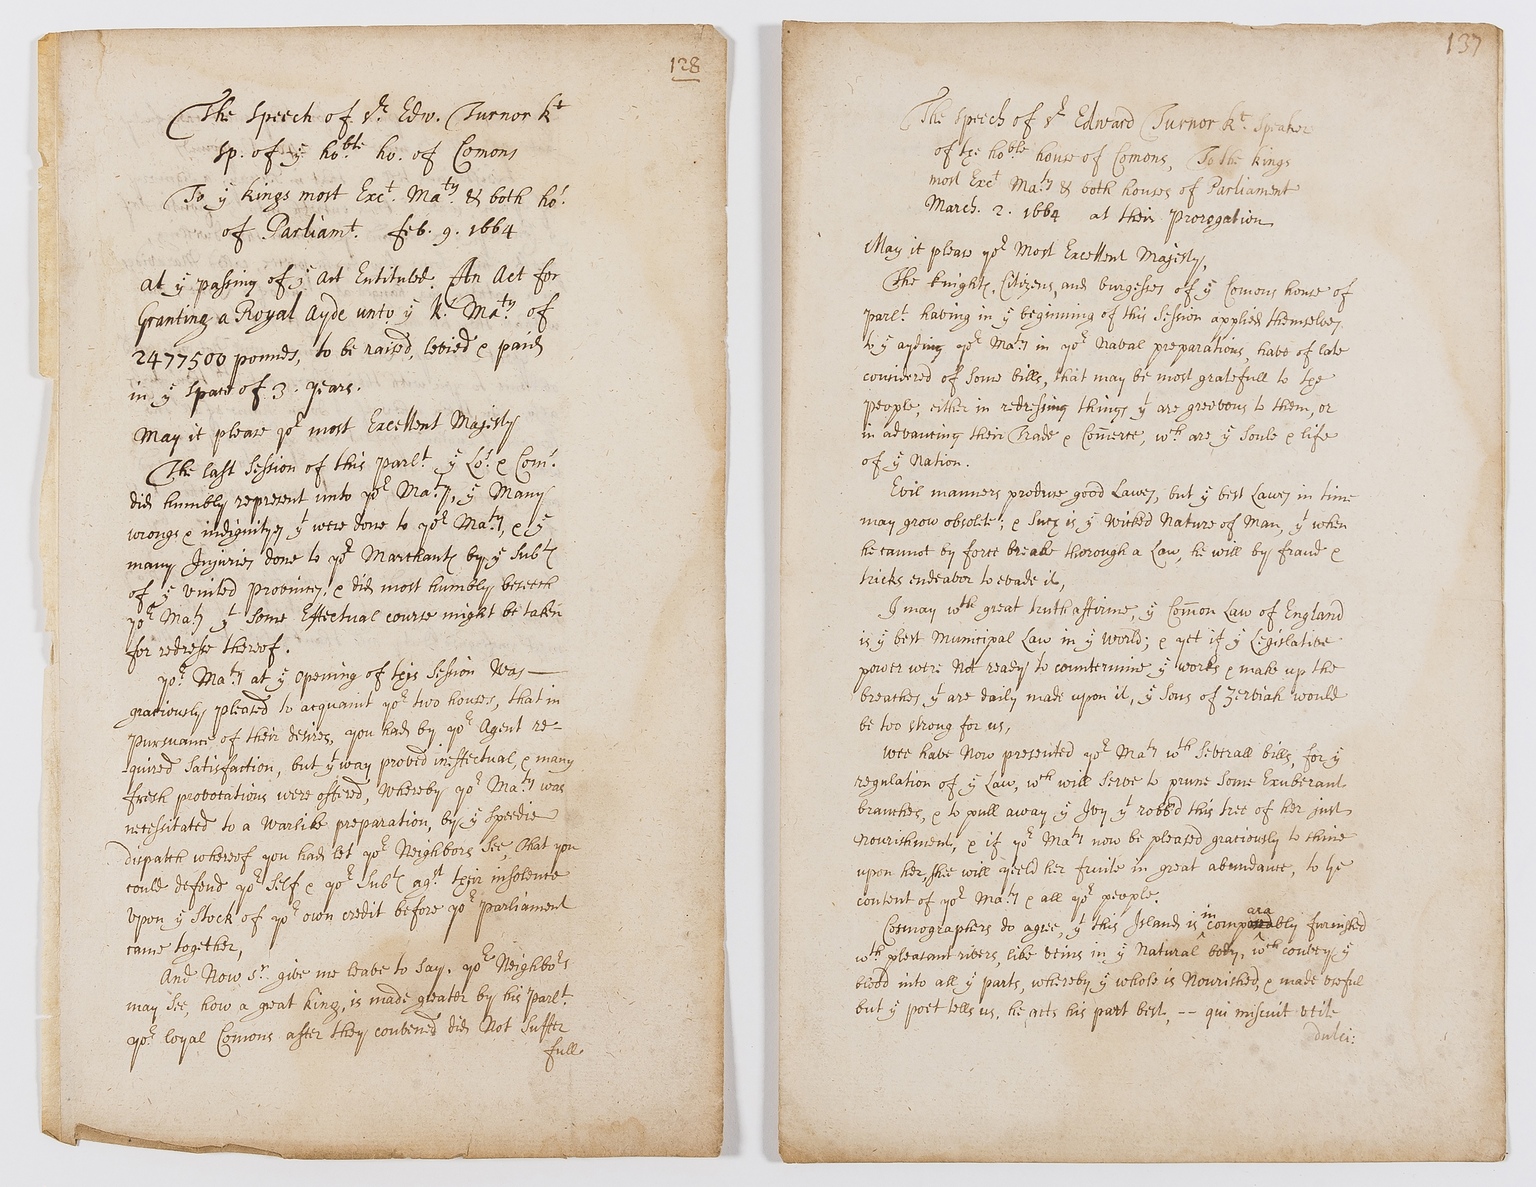 128
The Speech of Sr. Edw. Turnor Kt
Sp. of ye hoble ho. of Comons
To ye kings most Exct. Maty. & both ho:
of Parliamt. feb. 9. 1664
at ye passing of ye Act Entituled. An Act for
Granting a Royal Ayde unto ye K. Maty. of
2477500 pounds, to be raised, levied & paid
in ye space of 3. years.
May it please yor most Excellent Majesty
The last Session of this parlt. ye Lo: & Com:
did humbly represent unto yor Maty, ye Many
wrongs & indignityes yt were done to yor Maty, & ye
many Injuries done to yor Marchants by ye Subts
of ye united Provinces, & did most humbly beseech
yor Maty yt some Effectual course might be taken
for redresse thereof.
yor Maty at ye opening of this Session was
graciously pleased to acquaint yor two houses, that in
Pursuance of their desires, you had by yor Agent re-
quired Satisfaction, but yt way proved ineffectual, & many
fresh provocations were offered, whereby yor Maty was
necessitated to a Warlike preparation, by ye speedie
dispatch whereof you had let yor Neighbors see, that you
could defend yor Self & yor Subts agst their insolence
upon ye Stock of yor own credit before yor parliament
came together,
And Now Sr. give me leave to say, yor Neighbors
may see, how a great king, is made greater by his parlt.
yor loyal Comons after they convened did Not suffer
full
137
The Speech of Sr Edward Turnor Kt. Speaker
of the hoble house of Comons, To the kings
most Exct Maty & both houses of Parliament
March. 2. 1664 at their Prorogation
May it please yor Most Excellent Majesty,
The knights, Citizens, and burgesses of ye Comons house of
parlt. having in ye beginning of this Session applied themselves
to ye ayding yor Maty in yor Naval preparations, have of late
considered of some bills, that may be most gratefull to the
people; either in redressing things yt are greevous to them, or
in advancing their Trade & Comerce, wch are ye Soule & life
of ye Nation.
Evil manners produce good Lawes, but ye best Lawes in time
may grow obsolete; & such is ye Wicked Nature of Man, yt when
he cannot by force breake thorough a Law, he will by fraud &
tricks endeavor to evade it,
I may wth great truth affirme, ye Comon Law of England
is ye best Municipal Law in ye world; & yet if ye Legislative
power were Not ready to countermine ye works & make up the
breaches yt are daily made upon it, ye Sons of Zerviah would
be too strong for us,
Wee have Now presented yor Maty wth Severall bills, for ye
regulation of ye Law, wch will Serve to prune Some Exuberant
branches, & to pull away ye Ivy yt robb'd this tree of her just
nourishment, & if yor Maty now be pleased graciously to shine
upon her, shee will yeeld her fruite in great abundance, to ye
content of yor Maty & all yor people.
Cosmographers do agree, yt this Island is incomparably furnished
wth pleasant rivers, like veins in ye Natural body, wch convey ye
blood into all ye parts, whereby ye whole is Nourished, & made useful
but ye poet tells us, he acts his part best, -- qui miscuit utile
dulci: